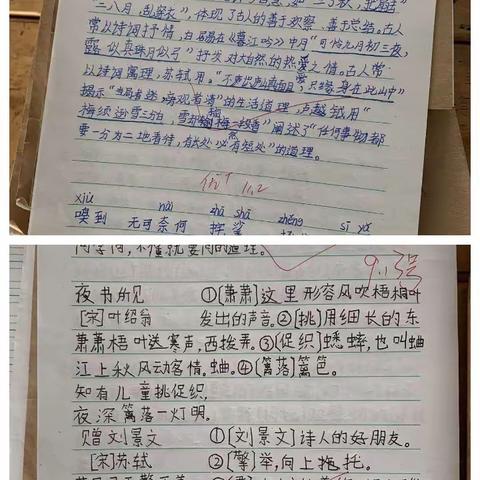 "三八月,乱穿衣",体现了古人的善于观察,善于总结。古人
常从诗词抒情,白居易在《暮江吟》中用"可怜九月初三夜,
露似真珠月似弓"抒发对大自然的热爱之情。古人常
以诗词寓理,苏轼用"不识庐山真面目,只缘身在此山中"
揭示"当局者迷,旁观者清"的生活道理,卢钺用"
梅须逊雪三分白,雪却输梅一段香"阐述了"任何事物都
要一分为二地看待,有长处必然有短处"的道理。
优 11.2
xiù nài zhā shā zhēng sī yǎ
嗅到 无可奈何 挓挲
问学问,不懂就要问的道理。
9.13
夜书所见 ①[萧萧]这里形容风吹梧桐叶
[宋]叶绍翁 发出的声音。②[挑]用细长的东
萧萧梧叶送寒声,西挨弄。③[促织]蟋蟀,也叫蛐
江上秋风动客情。蛐。④[篱落]篱笆。
知有儿童挑促织,
夜深篱落一灯明。
赠刘景文 ①[刘景文]诗人的好朋友。
[宋]苏轼 ②[擎]举,向上拖托。